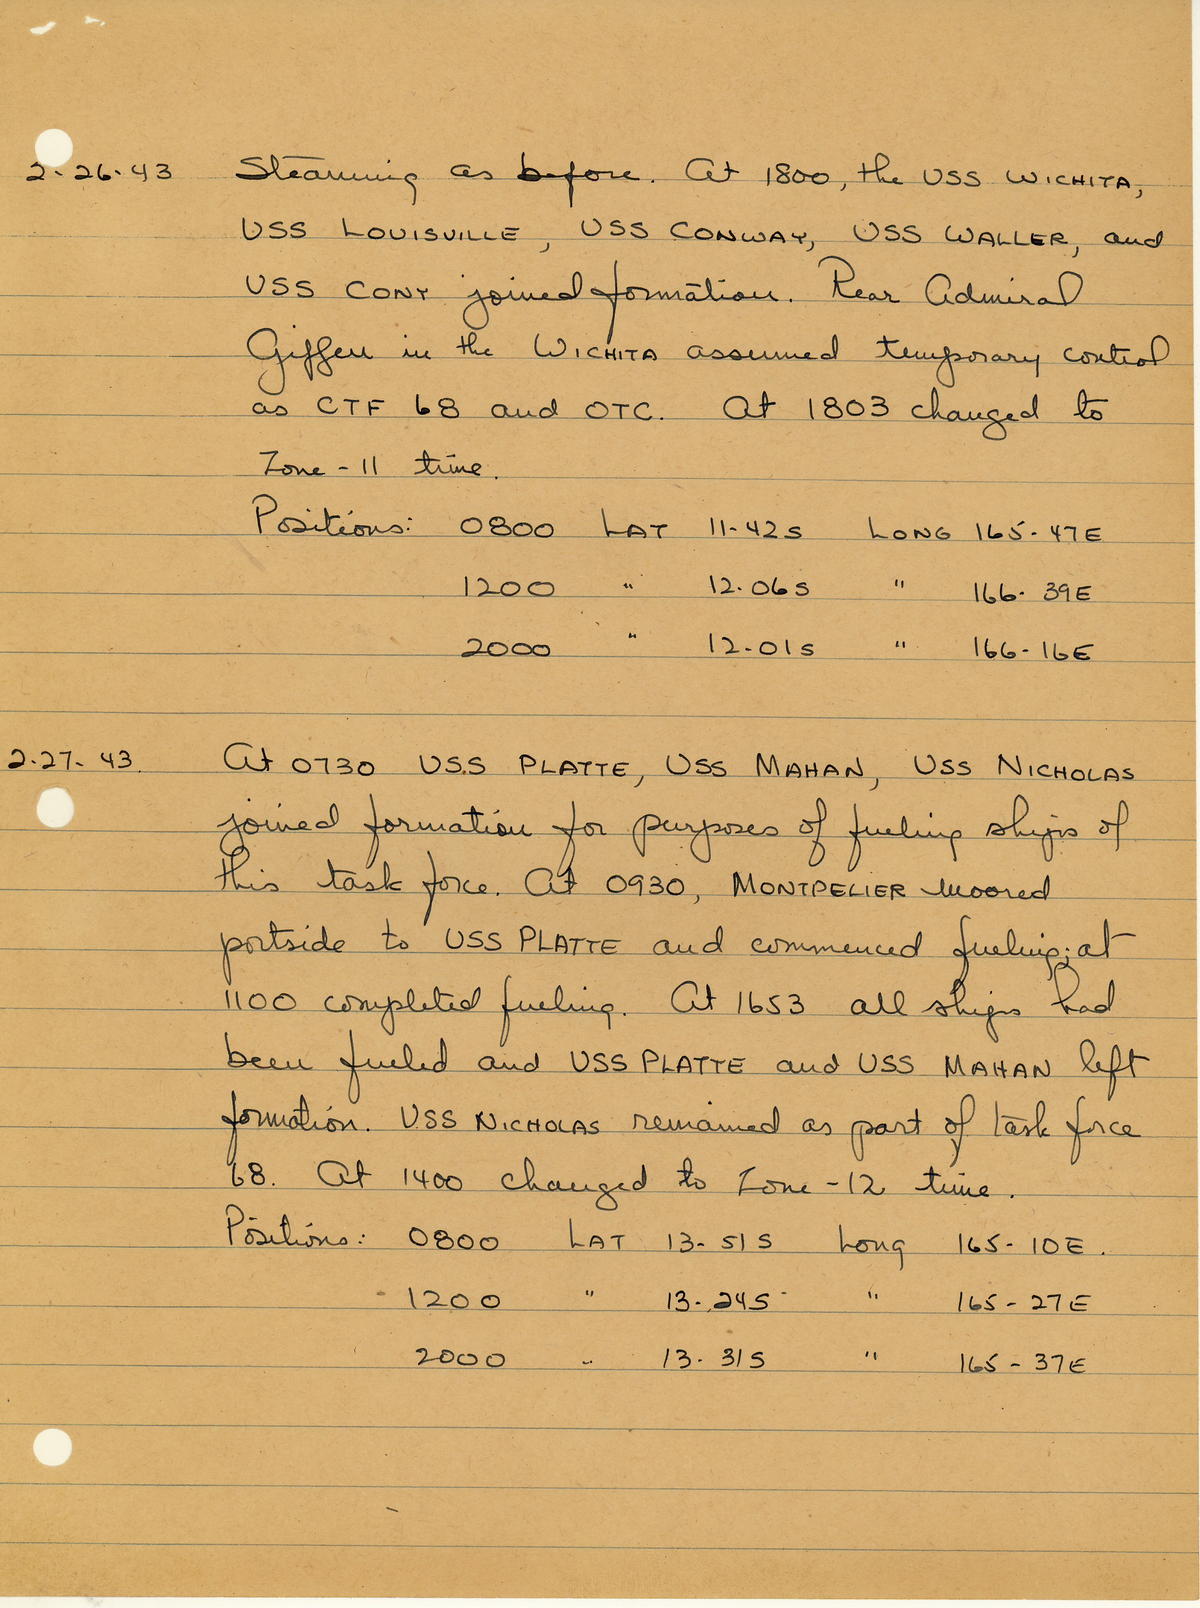 2-26-43 Steaming as before. At 1800, the USS WICHITA,
USS LOUISVILLE, USS CONWAY, USS WALLER, and
USS CONY joined formation. Rear Admiral
Giffen in the WICHITA assumed temporary control
as CTF 68 and OTC. At 1803 changed to
Zone -11 time.
Positions: 0800 LAT 11-42S LONG 165-47E
1200 " 12-06S " 166-39E
2000 " 12-01S " 166-16E
2-27-43. At 0730 USS PLATTE, USS MAHAN, USS NICHOLAS
joined formation for purposes of fueling ships of
this task force. At 0930, MONTPELIER moored
portside to USS PLATTE and commenced fueling; at
1100 completed fueling. At 1653 all ships had
been fueled and USS PLATTE and USS MAHAN left
formation. USS NICHOLAS remained as part of task force
68. At 1400 changed to Zone -12 time.
Positions: 0800 LAT 13-51S Long 165-10E.
1200 " 13-24S " 165-27E
2000 " 13-31S " 165-37E